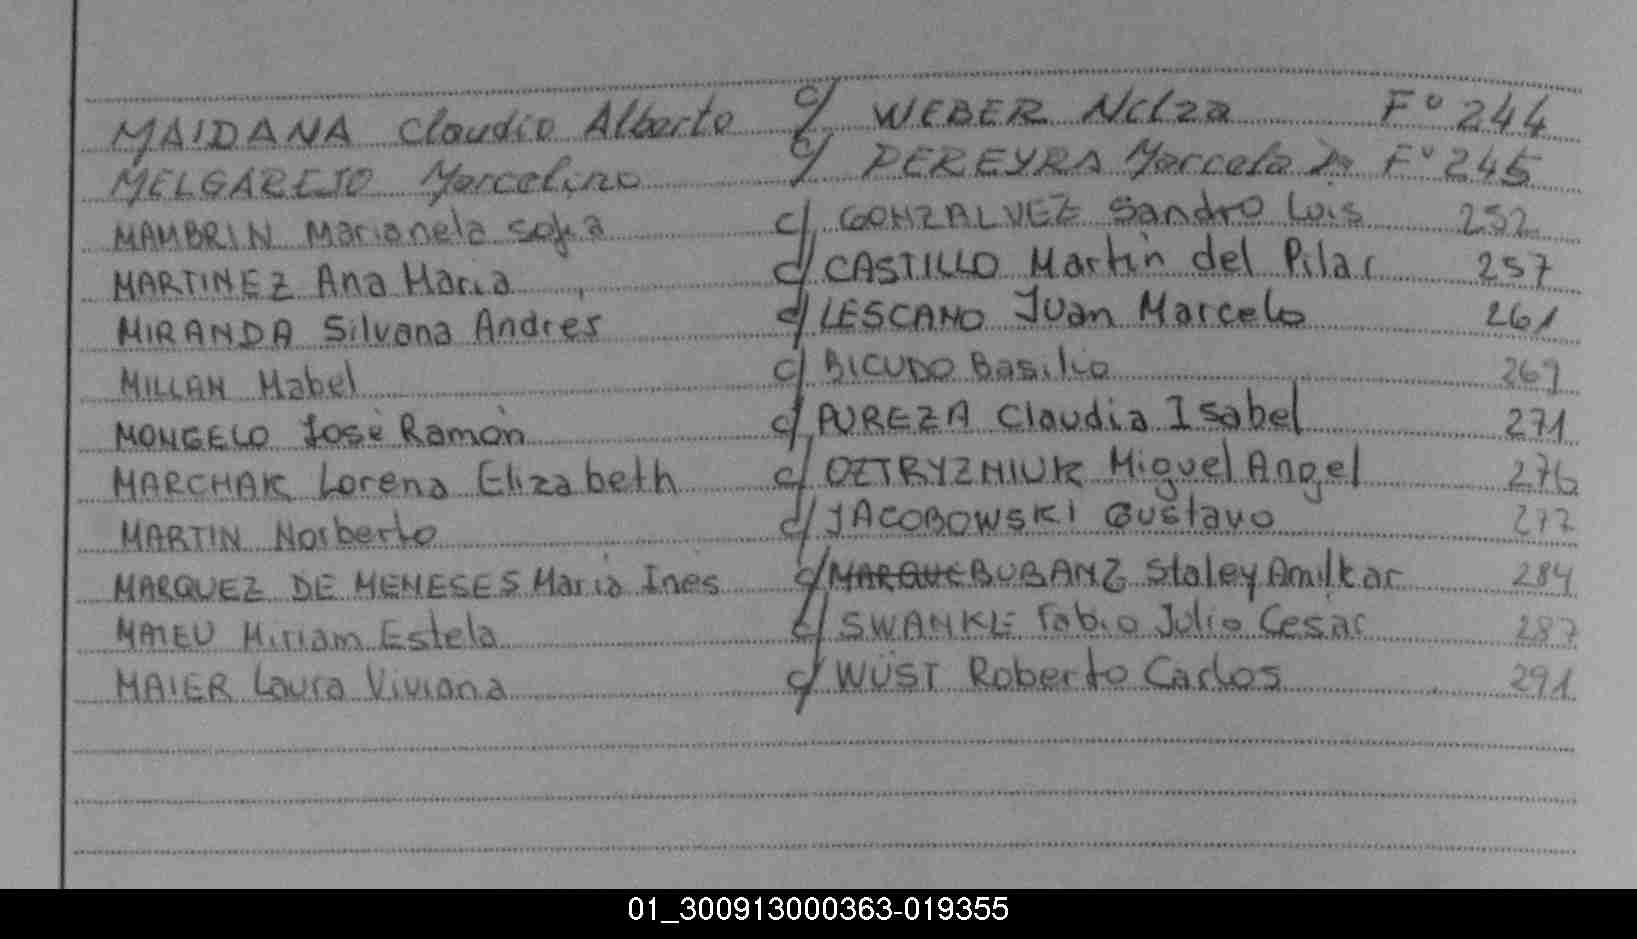 MAIDANA Claudio Alberto c/ WEBER Nelza Fº 244
MELGAREJO Marcelino c/ PEREYRA Marcela Fº 245
MAMBRIN Marianela Sofia c/ GONZALVEZ Sandro Luis 252
MARTINEZ Ana Maria c/ CASTILLO Martin del Pilar 257
MIRANDA Silvana Andres c/ LESCANO Juan Marcelo 261
MILLAN Mabel c/ BICUDO Basilio 269
MONGELO José Ramón c/ PUREZA Claudia Isabel 271
MARCHAK Lorena Elizabeth c/ OZTRYZNIUK Miguel Angel 276
MARTIN Norberto c/ JACOBOWSKI Gustavo 277
MARQUEZ DE MENESES Maria Ines c/ BUBANZ Staley Amilkar 284
MATEU Miriam Estela c/ SWANKE Fabio Julio Cesar 287
MAIER Laura Viviana c/ WÜST Roberto Carlos 291
01_300913000363-019355